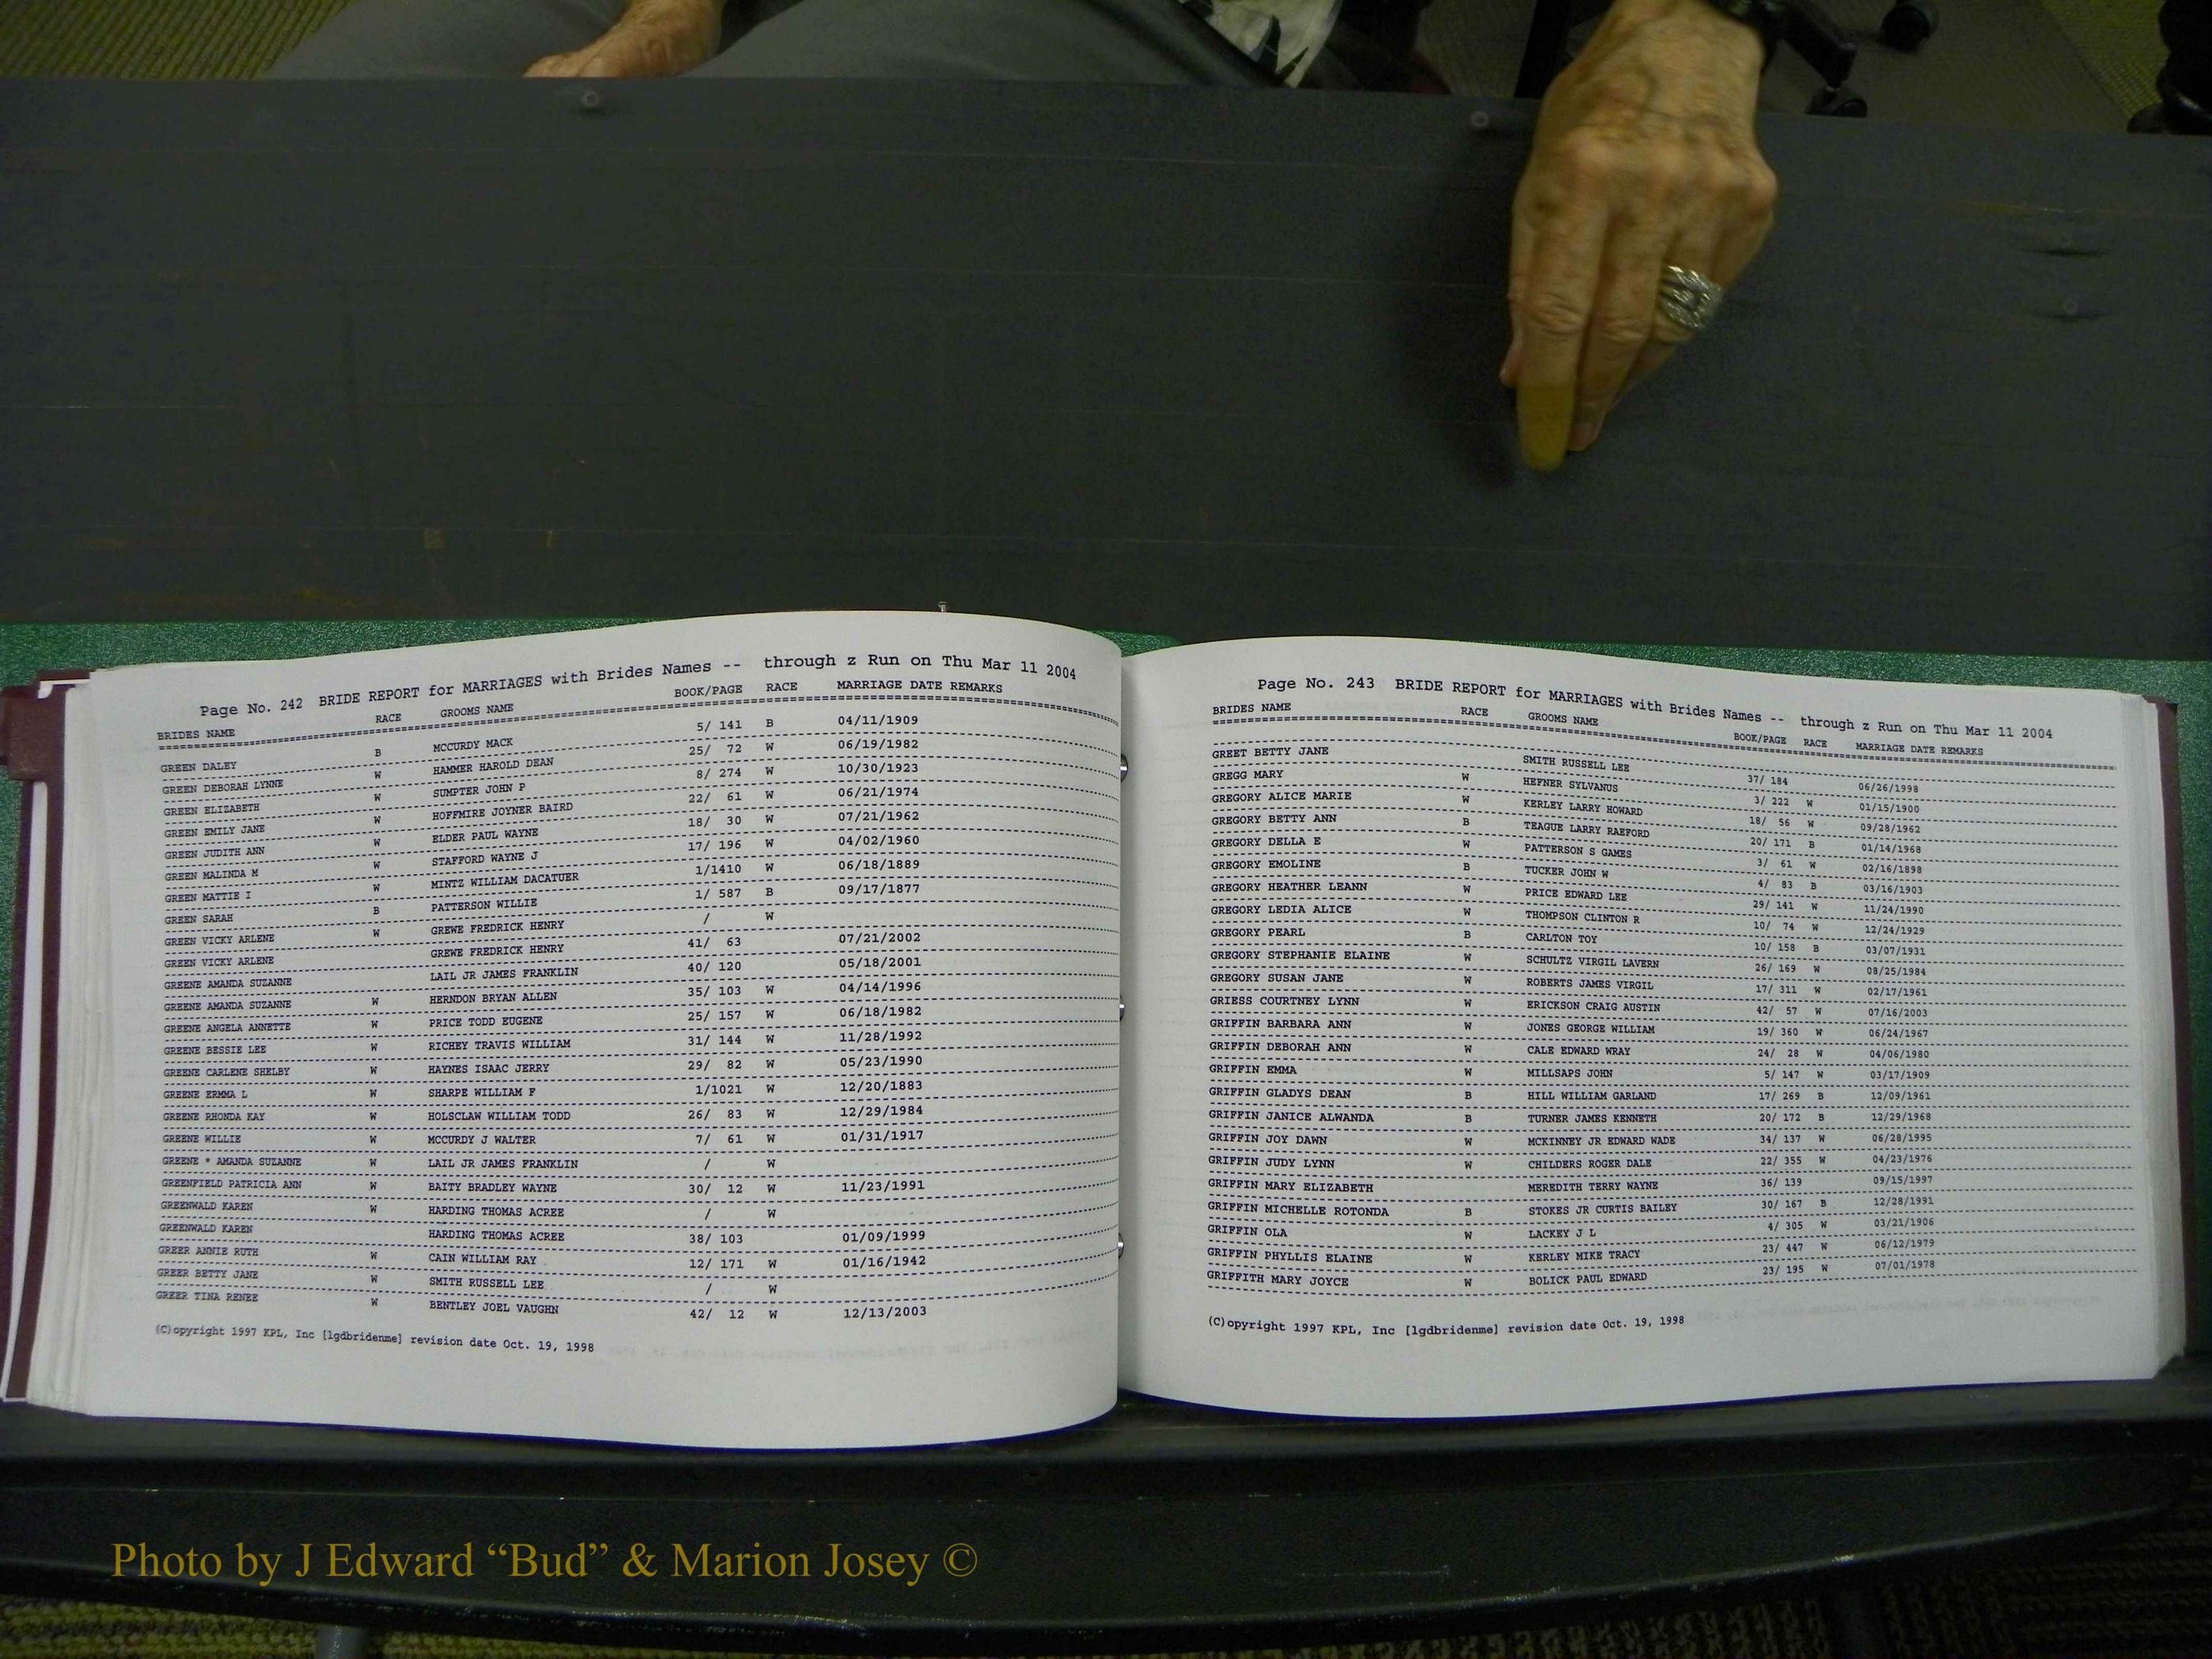 Page No. 242 BRIDE REPORT for MARRIAGES with Brides Names -- through z Run on Thu Mar 11 2004
BRIDES NAME RACE GROOMS NAME BOOK/PAGE RACE MARRIAGE DATE REMARKS
GREEN DALEY B MCCURDY MACK 5/ 141 B 04/11/1909
GREEN DEBORAH LYNNE W HAMMER HAROLD DEAN 25/ 72 W 06/19/1982
GREEN ELIZABETH W SUMPTER JOHN P 8/ 274 W 10/30/1923
GREEN EMILY JANE W HOFFMIRE JOYNER BAIRD 22/ 61 W 06/21/1974
GREEN JUDITH ANN W ELDER PAUL WAYNE 18/ 30 W 07/21/1962
GREEN MALINDA M W STAFFORD WAYNE J 17/ 196 W 04/02/1960
GREEN MATTIE I W MINTZ WILLIAM DACATUER 1/1410 W 06/18/1889
GREEN SARAH B PATTERSON WILLIE 1/ 587 B 09/17/1877
GREEN VICKY ARLENE W GREWE FREDRICK HENRY / W
GREEN VICKY ARLENE GREWE FREDRICK HENRY 41/ 63 07/21/2002
GREENE AMANDA SUZANNE LAIL JR JAMES FRANKLIN 40/ 120 05/18/2001
GREENE AMANDA SUZANNE W HERNDON BRYAN ALLEN 35/ 103 W 04/14/1996
GREENE ANGELA ANNETTE W PRICE TODD EUGENE 25/ 157 W 06/18/1982
GREENE BESSIE LEE W RICHEY TRAVIS WILLIAM 31/ 144 W 11/28/1992
GREENE CARLENE SHELBY W HAYNES ISAAC JERRY 29/ 82 W 05/23/1990
GREENE ERMMA L W SHARPE WILLIAM F 1/1021 W 12/20/1883
GREENE RHONDA KAY W HOLSCLAW WILLIAM TODD 26/ 83 W 12/29/1984
GREENE WILLIE W MCCURDY J WALTER 7/ 61 W 01/31/1917
GREENE * AMANDA SUZANNE W LAIL JR JAMES FRANKLIN / W
GREENFIELD PATRICIA ANN W BAITY BRADLEY WAYNE 30/ 12 W 11/23/1991
GREENWALD KAREN W HARDING THOMAS ACREE / W
GREENWALD KAREN HARDING THOMAS ACREE 38/ 103 01/09/1999
GREER ANNIE RUTH W CAIN WILLIAM RAY 12/ 171 W 01/16/1942
GREER BETTY JANE W SMITH RUSSELL LEE / W
GREER TINA RENEE W BENTLEY JOEL VAUGHN 42/ 12 W 12/13/2003
(C)opyright 1997 KPL, Inc [lgdbridenme] revision date Oct. 19, 1998
Page No. 243 BRIDE REPORT for MARRIAGES with Brides Names -- through z Run on Thu Mar 11 2004
BRIDES NAME RACE GROOMS NAME BOOK/PAGE RACE MARRIAGE DATE REMARKS
GREET BETTY JANE SMITH RUSSELL LEE 37/ 184 06/26/1998
GREGG MARY W HEFNER SYLVANUS 3/ 222 W 01/15/1900
GREGORY ALICE MARIE W KERLEY LARRY HOWARD 18/ 56 W 09/28/1962
GREGORY BETTY ANN B TEAGUE LARRY RAEFORD 20/ 171 B 01/14/1968
GREGORY DELLA E W PATTERSON S GAMES 3/ 61 W 02/16/1898
GREGORY EMOLINE B TUCKER JOHN W 4/ 83 B 03/16/1903
GREGORY HEATHER LEANN W PRICE EDWARD LEE 29/ 141 W 11/24/1990
GREGORY LEDIA ALICE W THOMPSON CLINTON R 10/ 74 W 12/24/1929
GREGORY PEARL B CARLTON TOY 10/ 158 B 03/07/1931
GREGORY STEPHANIE ELAINE W SCHULTZ VIRGIL LAVERN 26/ 169 W 08/25/1984
GREGORY SUSAN JANE W ROBERTS JAMES VIRGIL 17/ 311 W 02/17/1961
GRIESS COURTNEY LYNN W ERICKSON CRAIG AUSTIN 42/ 57 W 07/16/2003
GRIFFIN BARBARA ANN W JONES GEORGE WILLIAM 19/ 360 W 06/24/1967
GRIFFIN DEBORAH ANN W CALE EDWARD WRAY 24/ 28 W 04/06/1980
GRIFFIN EMMA W MILLSAPS JOHN 5/ 147 W 03/17/1909
GRIFFIN GLADYS DEAN B HILL WILLIAM GARLAND 17/ 269 B 12/09/1961
GRIFFIN JANICE ALWANDA B TURNER JAMES KENNETH 20/ 172 B 12/29/1968
GRIFFIN JOY DAWN W MCKINNEY JR EDWARD WADE 34/ 137 W 06/28/1995
GRIFFIN JUDY LYNN W CHILDERS ROGER DALE 22/ 355 W 04/23/1976
GRIFFIN MARY ELIZABETH MEREDITH TERRY WAYNE 36/ 139 09/15/1997
GRIFFIN MICHELLE ROTONDA B STOKES JR CURTIS BAILEY 30/ 167 B 12/28/1991
GRIFFIN OLA W LACKEY J L 4/ 305 W 03/21/1906
GRIFFIN PHYLLIS ELAINE W KERLEY MIKE TRACY 23/ 447 W 06/12/1979
GRIFFITH MARY JOYCE W BOLICK PAUL EDWARD 23/ 195 W 07/01/1978
(C)opyright 1997 KPL, Inc [lgdbridenme] revision date Oct. 19, 1998
Photo by J Edward “Bud” & Marion Josey ©